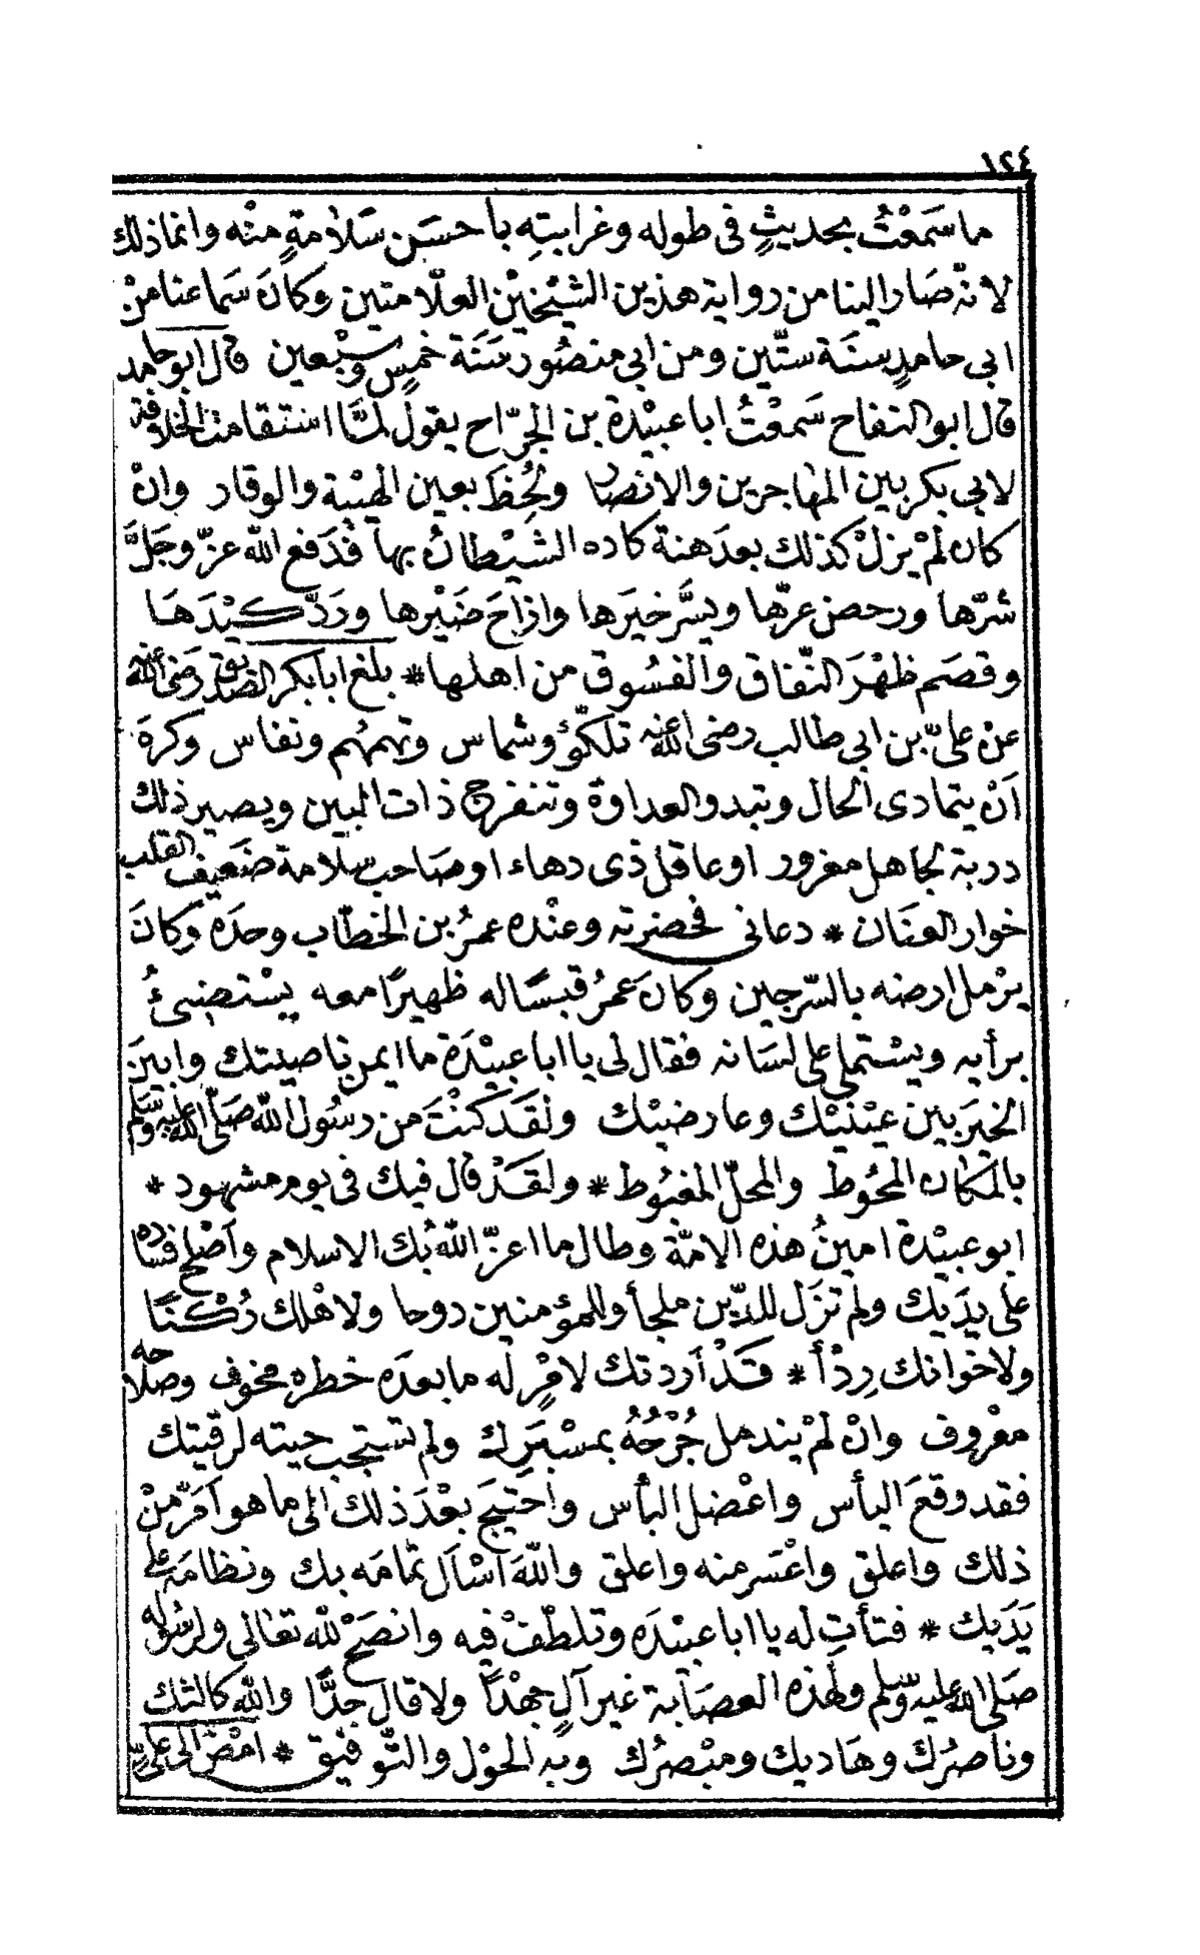 ١٢٤
ما سَمعْتُ بحديثٍ فى طوله وغرابتِه بأحسَن سَلامةٍ منْه وانما ذلك
لانّه صَار الينا من رواية هذين الشيْخيْن العلّامتين وكانَ سَماعنا منْ
ابى حامدٍ سنَة ستّين ومن ابى منصُور سَنَة خمسٍ وسبْعين قال ابو حامد
قال ابو النفاح سَمعْتُ ابا عبيْدة بن الجرّاح يقول لمَّا استقامت الخلافة
لابى بكر بين المهاجرين والانصار ولُحِظَ بعين الهيْبة والوقار وانْ
كان لمْ يزلْ كذلك بعدَ هنة كاده الشيْطانُ بها فدَفع الله عزّ وجلَّ
شرّها ورحض عرّها ويسَّر خيرَها وازاحَ ضَيْرها وردّ كيْدَهَا
وقصَم ظهْرَ النّفاق والفسُوق من اهلها * بلغ ابابكر الصّديق رضى الله عنه
عنْ علىّ بن ابى طالب رضى الله عنه تلكّؤ وشماس وتهمهُم ونفاس وكرهَ
اَنْ يتمادى الحال وتبدو العداوة وتنفرج ذات البين ويصير ذلك
دربة لجاهل مغرور او عاقل ذى دهاء او صَاحب سلامة ضَعيف القلب
خوار العنَان * دعانى فحضرته وعنْده عمرُ بن الخطّاب وحدَه وكانَ
يزْمل ارضه بالسّرجين وكان عمرُ قبسًا له ظهيرًا معه يسْتضىئُ
برأيه ويسْتملى على لسَانه فقال لى يا ابا عبيْدَة ما ايمن ناصيتك وابينَ
الخيرَ بين عيْنيْك وعارضيْك ولقَد كنْتَ من رسُول الله صَلّى الله عليه وسَلم
بالمكان المحُوط والمحلّ المغبُوط * ولقَدْ قال فيك فى يوم مشهود *
ابو عبيْدة امينُ هذه الامّة وطال ما اعزّ اللهُ بك الاسلام واَصْلح فسَاده
على يدَيك ولم تزَل للدّين ملجأ وللمؤمنين دوحا ولاهْلك رُكْنًا
ولاخْوانك رِدْأ * قَدْ أردتك لامْرٍ له ما بعدَه خطره مخوف وصلاحه
معْروف وانْ لمْ يندمل جُرْحُهُ بمسْبَرِك ولم تستجب حيته لرقيتك
فقد وقعَ اليأس واعْضل البأس واحْتيجَ بعْدَ ذلك الى ما هو اَمَرّ منْ
ذلك واعلق واعْسَر منه واعلق واللهَ اسْأل تمامَه بك ونظامَه على
يَدَيك * فتأتِ له يا ابا عبيْدَه وتلطّفْ فيه وانصَحْ لله تعَالى ولرسُوله
صَلى الله عليه وسّلم ولهذه العصَابة غير آلٍ جهْدًا ولا قال جدًّا والله كالئك
وناصرُك وهَاديك ومبْصرُك وبه الحوْل والتّوفيق * امْض الى علىّ